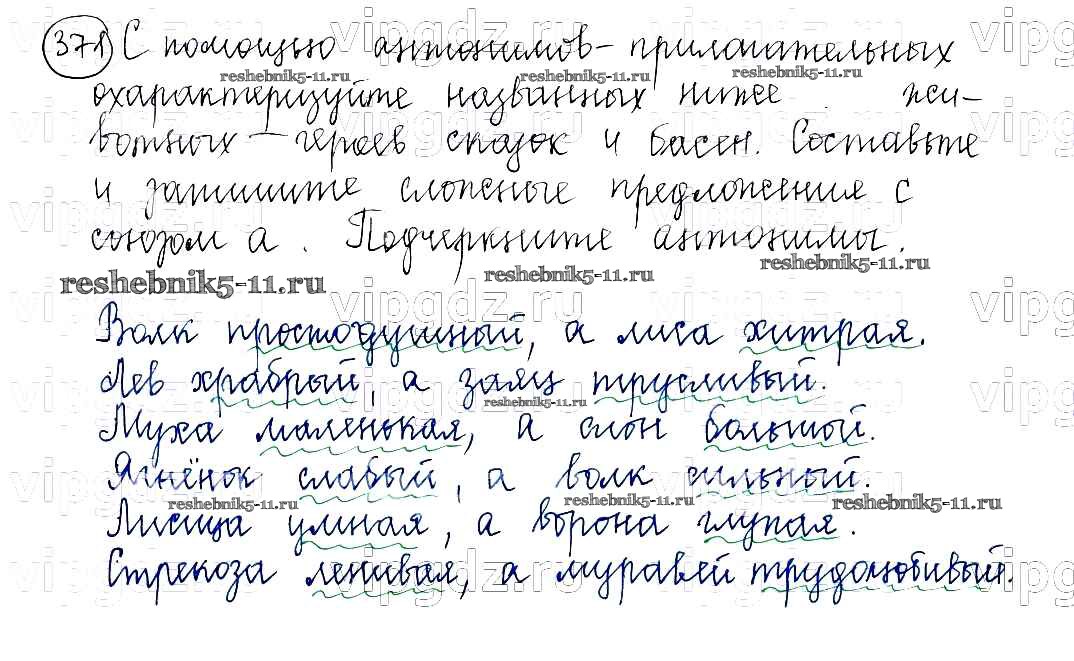 371 С помощью антонимов-прилагательных
охарактеризуйте названных ниже жи-
вотных – героев сказок и басен. Составьте
и запишите сложные предложения с
союзом а. Подчеркните антонимы.
Волк простодушный, а лиса хитрая.
Лев храбрый, а заяц трусливый.
Муха маленькая, а слон большой.
Ягнёнок слабый, а волк сильный.
Лисица умная, а ворона глупая.
Стрекоза ленивая, а муравей трудолюбивый.
reshebnik5-11.ru
vipgdz.ru